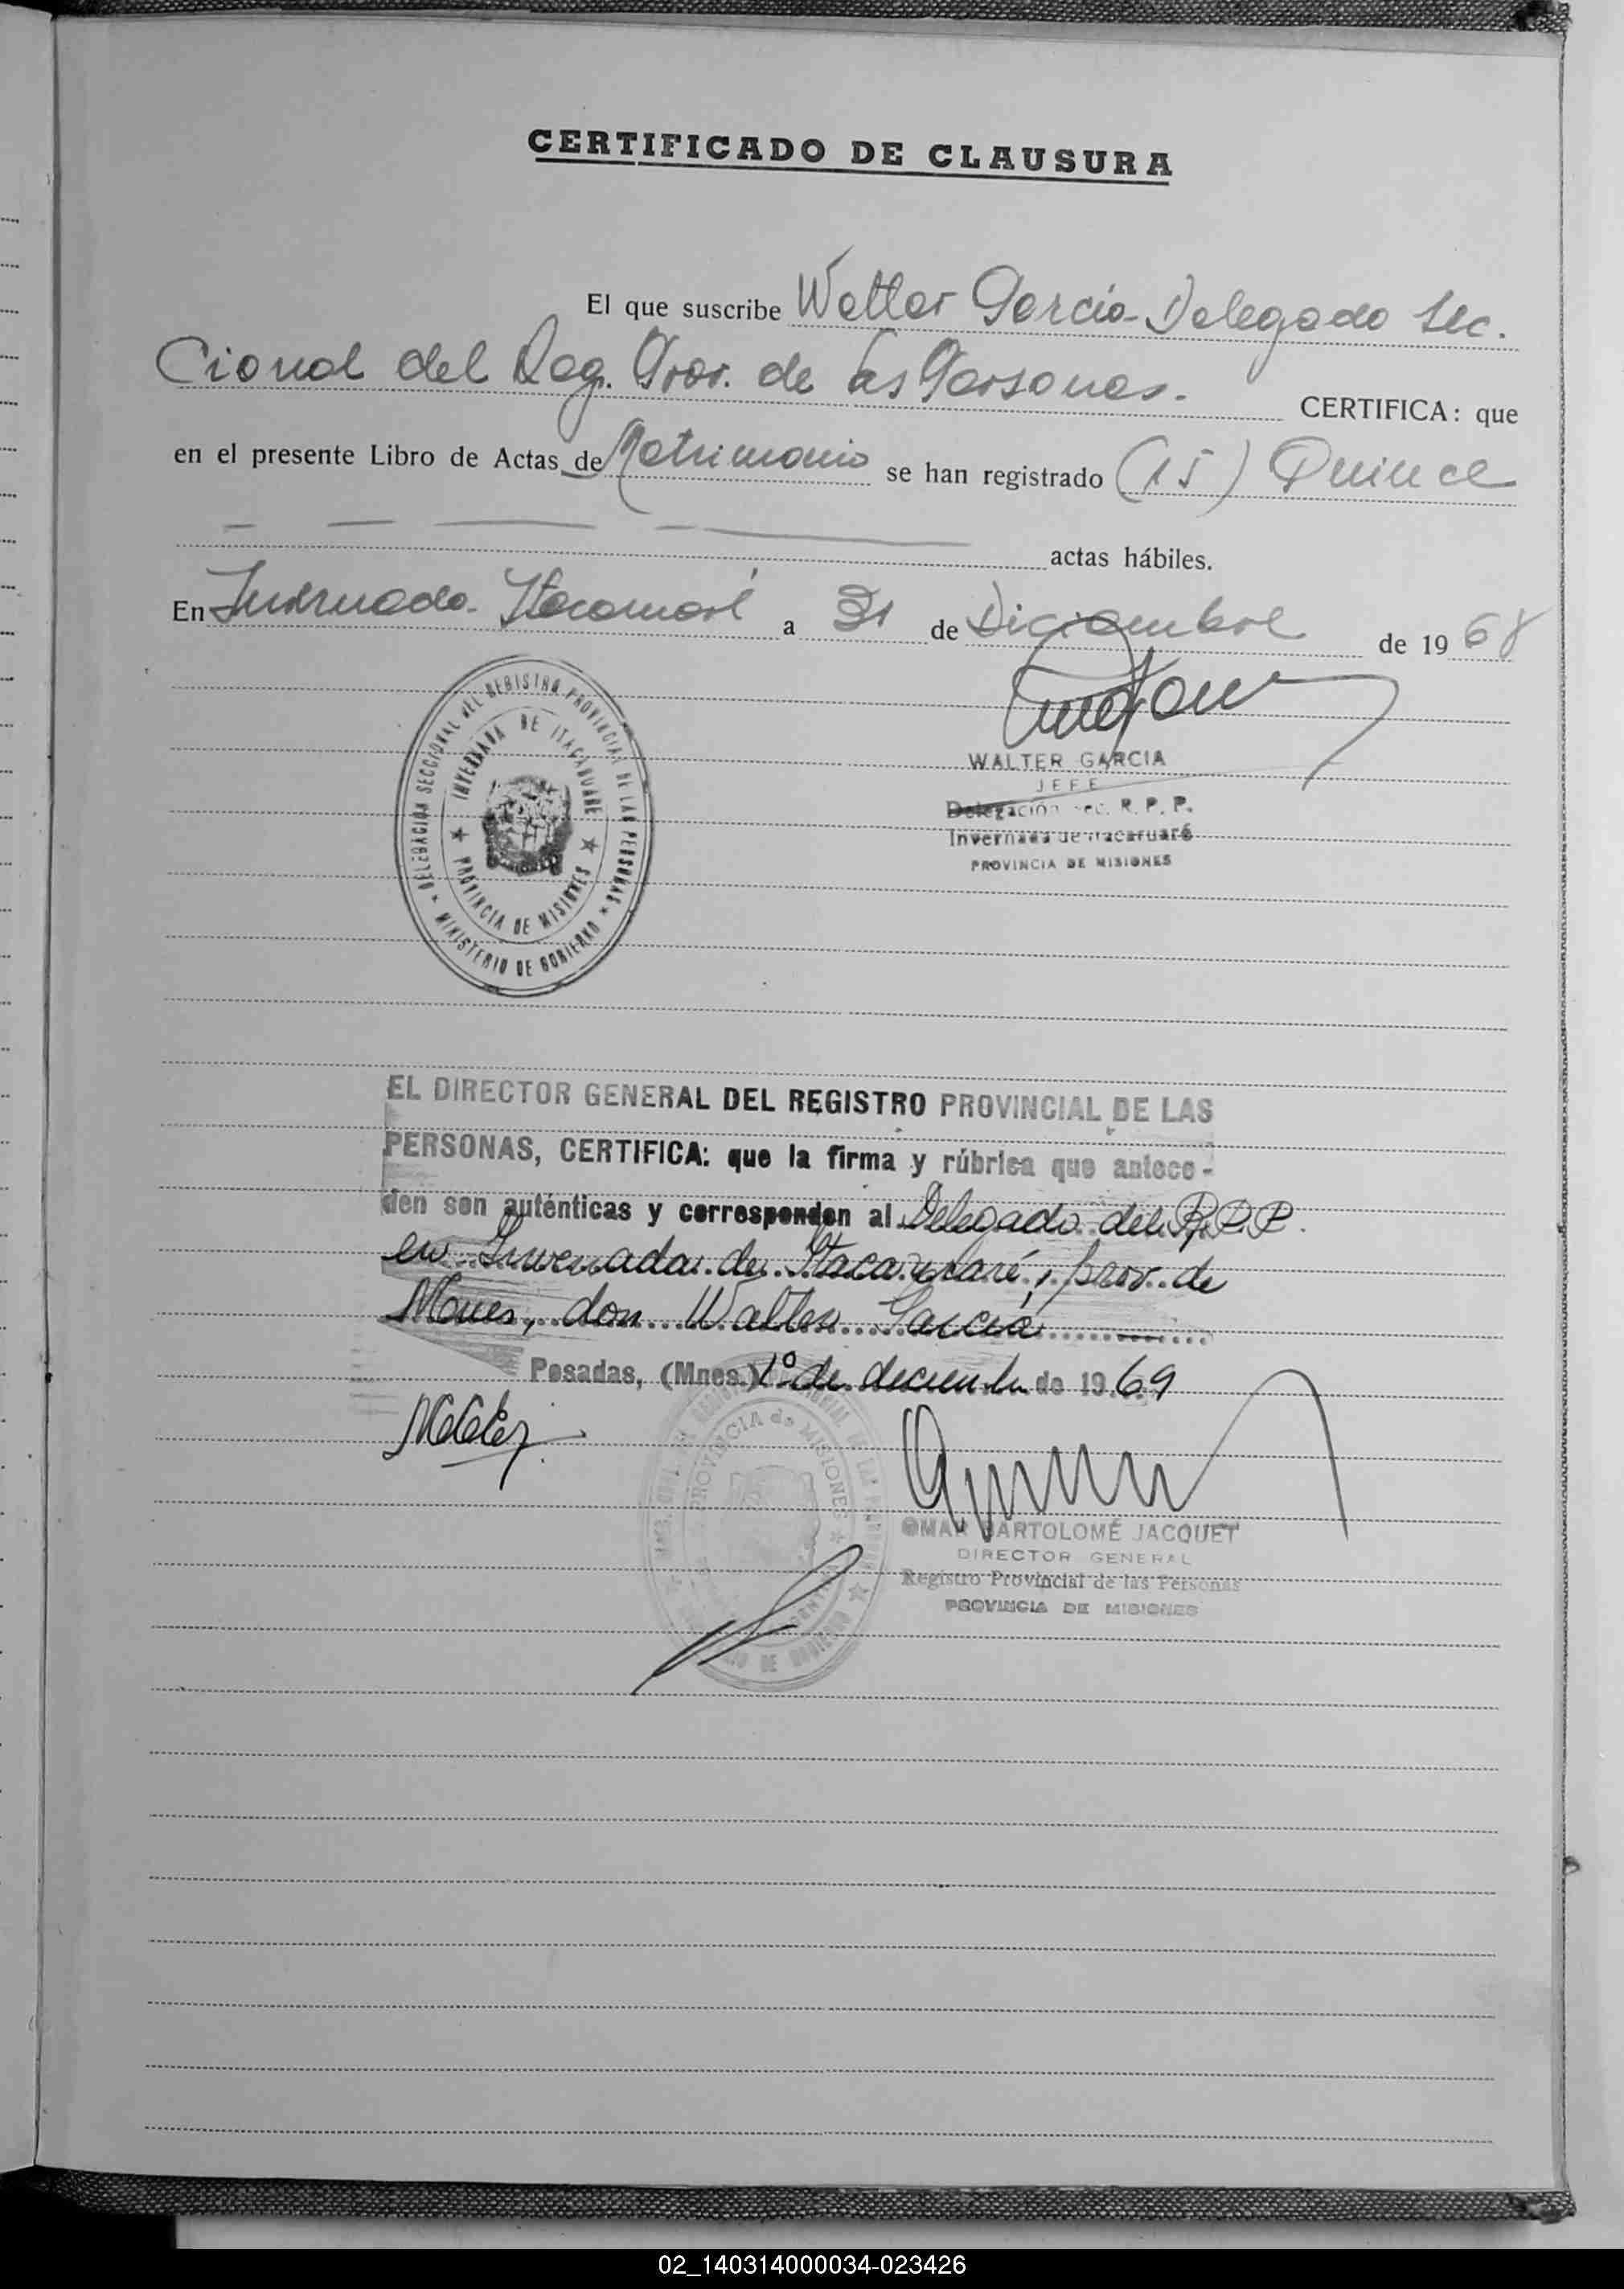 CERTIFICADO DE CLAUSURA
El que suscribe Walter García - Delegado Sec.
cional del Reg. Prov. de las Personas. CERTIFICA: que
en el presente Libro de Actas de Matrimonio se han registrado (15) Quince
actas hábiles.
En Invernada Itacaruaré a 31 de Diciembre de 1968
DELEGACIÓN SECCIONAL DEL REGISTRO PROVINCIAL DE LAS PERSONAS
INVERNADA DE ITACARUARE
PROVINCIA DE MISIONES
MINISTERIO DE GOBIERNO
WALTER GARCIA
JEFE
Delegación Sec. R. P. P.
Invernada de Itacaruaré
PROVINCIA DE MISIONES
EL DIRECTOR GENERAL DEL REGISTRO PROVINCIAL DE LAS
PERSONAS, CERTIFICA: que la firma y rúbrica que antece -
den son auténticas y corresponden al Delegado del R.P.P.
en Invernada de Itacaruaré, prov. de
Mnes, don Walter García
Posadas, (Mnes.) 1º de diciembre de 1969
PROVINCIA de MISIONES
OMAR BARTOLOMÉ JACQUET
DIRECTOR GENERAL
Registro Provincial de las Personas
PROVINCIA DE MISIONES
02_140314000034-023426